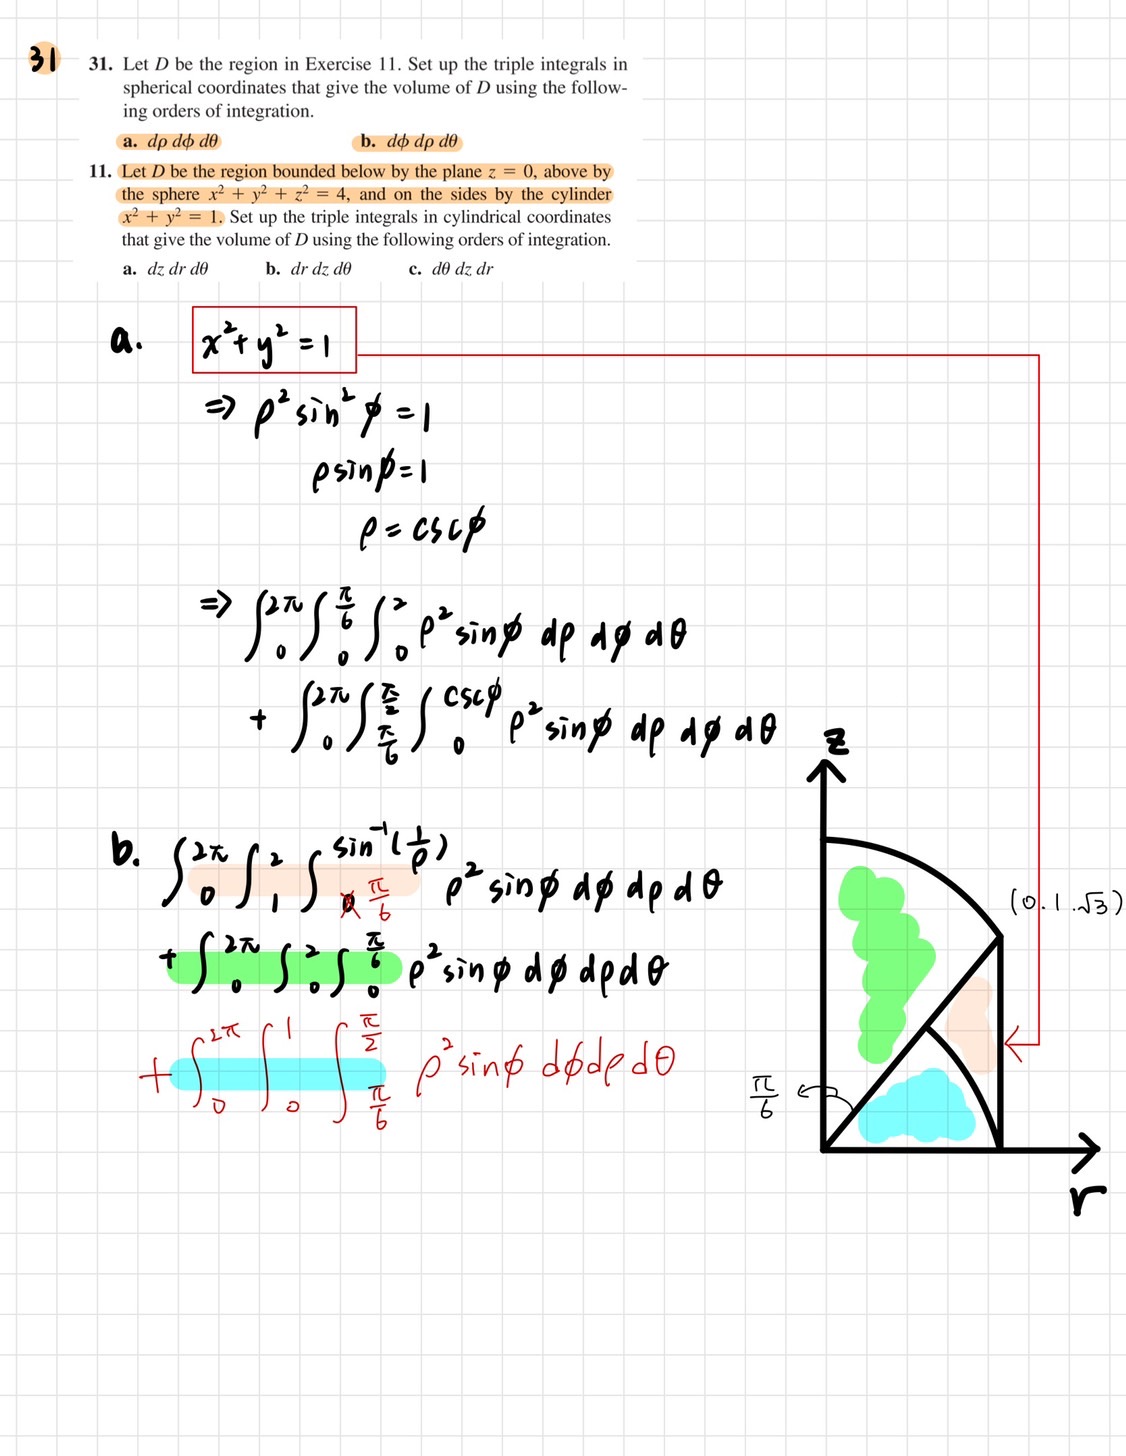 31
31. Let D be the region in Exercise 11. Set up the triple integrals in
spherical coordinates that give the volume of D using the follow-
ing orders of integration.
a. dρ dϕ dθ b. dϕ dρ dθ
11. Let D be the region bounded below by the plane z = 0, above by
the sphere x² + y² + z² = 4, and on the sides by the cylinder
x² + y² = 1. Set up the triple integrals in cylindrical coordinates
that give the volume of D using the following orders of integration.
a. dz dr dθ b. dr dz dθ c. dθ dz dr
a. x²+y²=1
⇒ ρ² sin² ϕ = 1
ρ sinϕ = 1
ρ = cscϕ
⇒ ∫₀^2π ∫₀^π/6 ∫₀^2 ρ² sinϕ dρ dϕ dθ
+ ∫₀^2π ∫_π/6^π/2 ∫₀^cscϕ ρ² sinϕ dρ dϕ dθ
b. ∫₀^2π ∫₁^2 ∫_π/6^sin⁻¹(1/ρ) ρ² sinϕ dϕ dρ dθ
+ ∫₀^2π ∫₀^2 ∫₀^π/6 ρ² sinϕ dϕ dρ dθ
+ ∫₀^2π ∫₀^1 ∫_π/6^π/2 ρ² sinϕ dϕ dρ dθ
z
(0.1.√3)
π/6
r